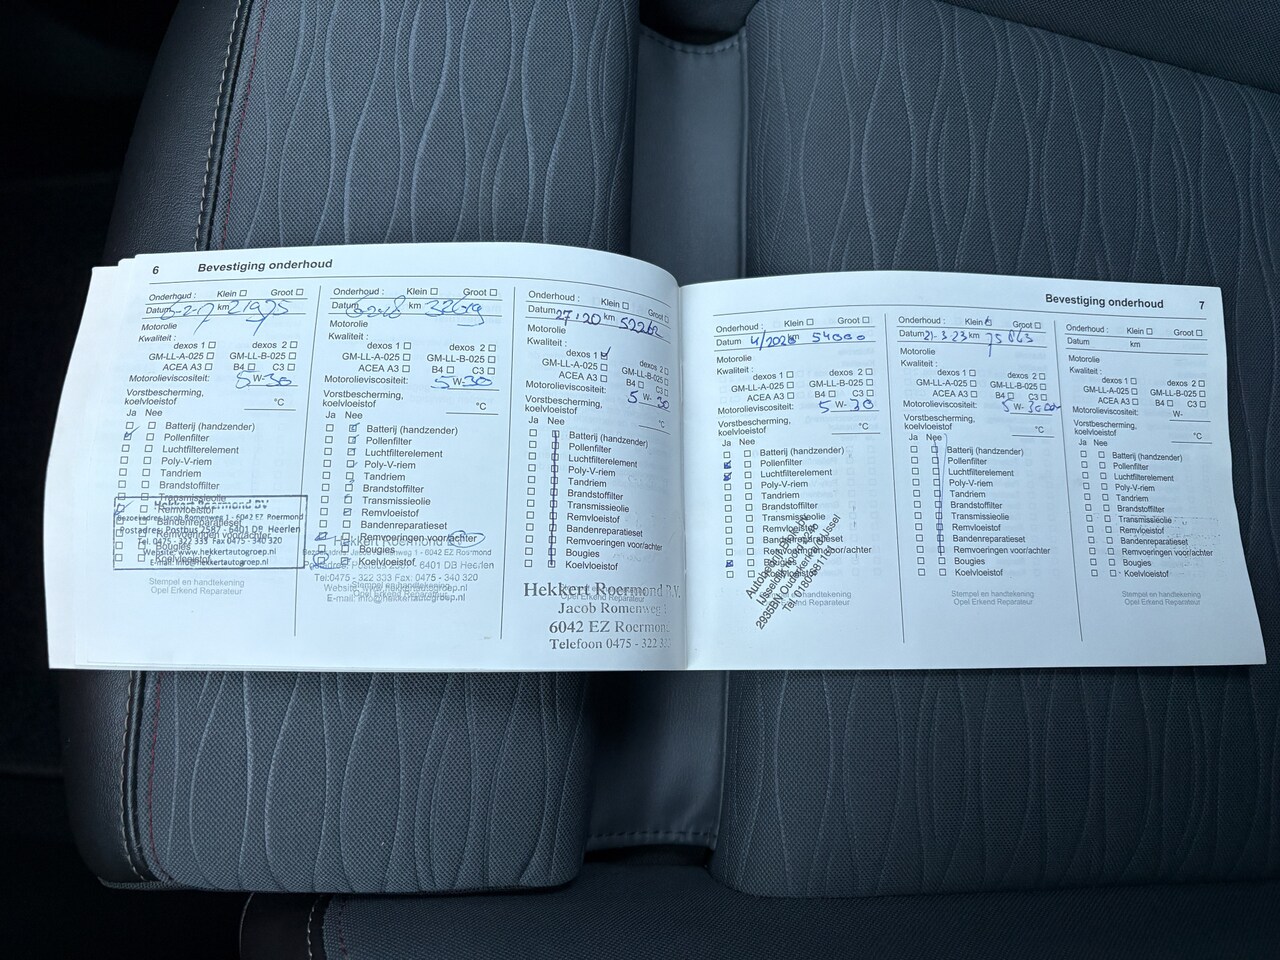 6 Bevestiging onderhoud
Onderhoud : Klein Groot
Datum km 21975
Motorolie
Kwaliteit :
dexos 1 dexos 2
GM-LL-A-025 GM-LL-B-025
ACEA A3 B4 C3
Motorolieviscositeit: 5 W-30
Vorstbescherming,
koelvloeistof °C
Ja Nee
Batterij (handzender)
Pollenfilter
Luchtfilterelement
Poly-V-riem
Tandriem
Brandstoffilter
Transmissieolie
Remvloeistof
Bandenreparatieset
Remvoeringen voor/achter
Bougies
Koelvloeistof
Hekkert Roermond BV
Bezoekadres: Jacob Romenweg 1 - 6042 EZ Roermond
Postadres: Postbus 2587 - 6401 DB Heerlen
Tel. 0475 - 322 333 Fax 0475 - 340 320
Website: www.hekkertautogroep.nl
E-mail: info@hekkertautogroep.nl
Stempel en handtekening
Opel Erkend Reparateur
Onderhoud : Klein Groot
Datum km
Motorolie
Kwaliteit :
dexos 1 dexos 2
GM-LL-A-025 GM-LL-B-025
ACEA A3 B4 C3
Motorolieviscositeit: 5 W-30
Vorstbescherming,
koelvloeistof °C
Ja Nee
Batterij (handzender)
Pollenfilter
Luchtfilterelement
Poly-V-riem
Tandriem
Brandstoffilter
Transmissieolie
Remvloeistof
Bandenreparatieset
Remvoeringen voor/achter
Bougies
Koelvloeistof
Hekkert Roermond
Bezoekadres: Jacob Romenweg 1 - 6042 EZ Roermond
Postadres: Postbus 2587 - 6401 DB Heerlen
Tel:0475 - 322 333 Fax: 0475 - 340 320
Website: www.hekkertautogroep.nl
E-mail: info@hekkertautogroep.nl
Stempel en handtekening
Opel Erkend Reparateur
Onderhoud : Klein Groot
Datum km 52262
Motorolie
Kwaliteit :
dexos 1 dexos 2
GM-LL-A-025 GM-LL-B-025
ACEA A3 B4 C3
Motorolieviscositeit: 5 W- 30
Vorstbescherming,
koelvloeistof °C
Ja Nee
Batterij (handzender)
Pollenfilter
Luchtfilterelement
Poly-V-riem
Tandriem
Brandstoffilter
Transmissieolie
Remvloeistof
Bandenreparatieset
Remvoeringen voor/achter
Bougies
Koelvloeistof
Opel Erkend Reparateur
Hekkert Roermond B.V.
Jacob Romenweg 1
6042 EZ Roermon
Telefoon 0475 - 322 33
Bevestiging onderhoud 7
Onderhoud : Klein Groot
Datum km 54000
Motorolie
Kwaliteit :
dexos 1 dexos 2
GM-LL-A-025 GM-LL-B-025
ACEA A3 B4 C3
Motorolieviscositeit: 5 W- 30
Vorstbescherming,
koelvloeistof °C
Ja Nee
Batterij (handzender)
Pollenfilter
Luchtfilterelement
Poly-V-riem
Tandriem
Brandstoffilter
Transmissieolie
Remvloeistof
Bandenreparatieset
Remvoeringen voor/achter
Bougies
Koelvloeistof
2935BN Ouderkerk
handtekening
Reparateur
Onderhoud : Klein Groot
Datum 21-3-23 km 75863
Motorolie
Kwaliteit :
dexos 1 dexos 2
GM-LL-A-025 GM-LL-B-025
ACEA A3 B4 C3
Motorolieviscositeit: 5 W- 30
Vorstbescherming,
koelvloeistof °C
Ja Nee
Batterij (handzender)
Pollenfilter
Luchtfilterelement
Poly-V-riem
Tandriem
Brandstoffilter
Transmissieolie
Remvloeistof
Bandenreparatieset
Remvoeringen voor/achter
Bougies
Koelvloeistof
Stempel en handtekening
Opel Erkend Reparateur
Onderhoud : Klein Groot
Datum km
Motorolie
Kwaliteit :
dexos 1 dexos 2
GM-LL-A-025 GM-LL-B-025
ACEA A3 B4 C3
Motorolieviscositeit: W-
Vorstbescherming,
koelvloeistof °C
Ja Nee
Batterij (handzender)
Pollenfilter
Luchtfilterelement
Poly-V-riem
Tandriem
Brandstoffilter
Transmissieolie
Remvloeistof
Bandenreparatieset
Remvoeringen voor/achter
Bougies
Koelvloeistof
Stempel en handtekening
Opel Erkend Reparateur